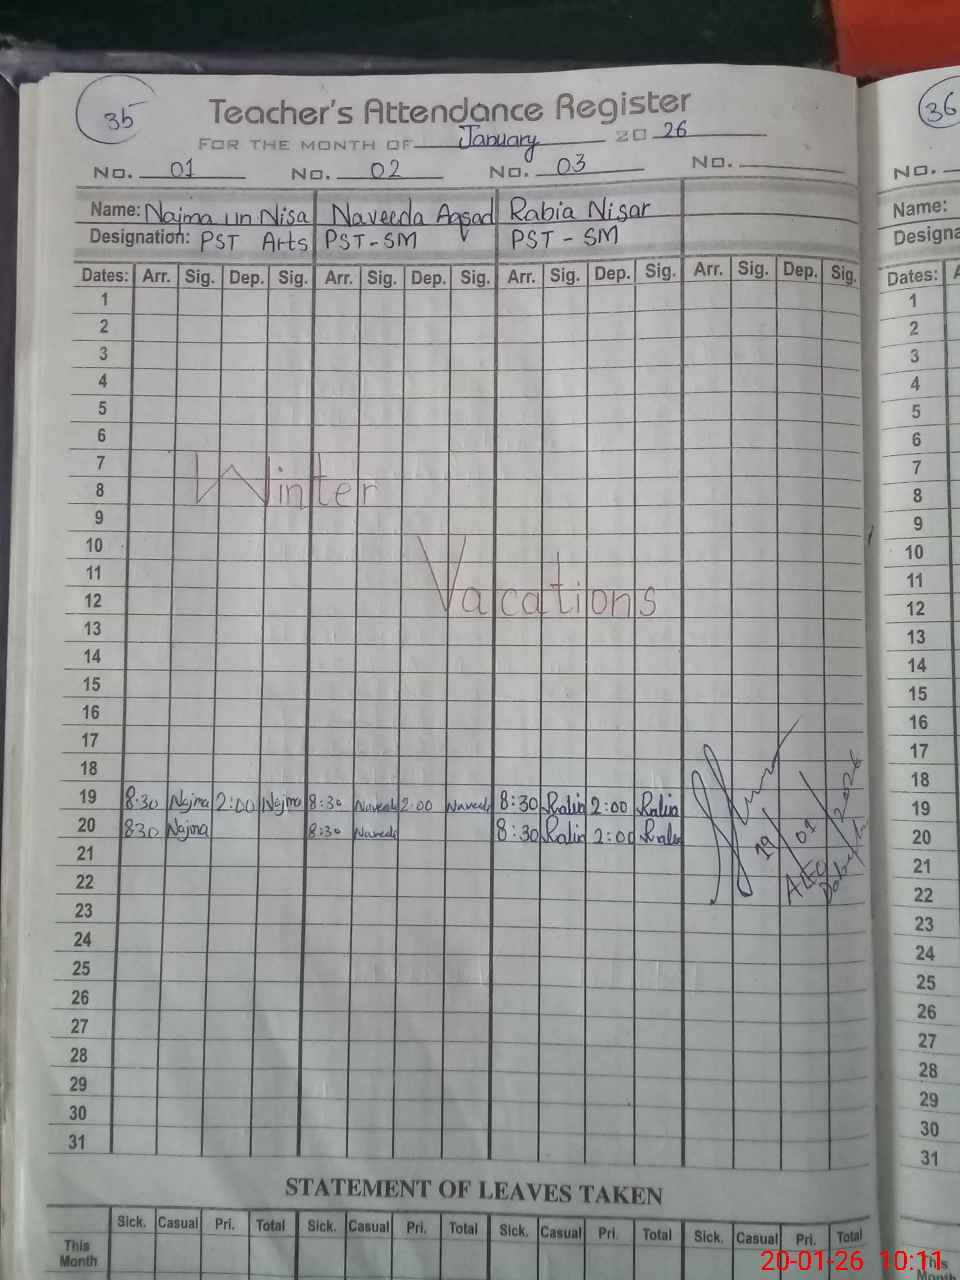 35
Teacher's Attendance Register
FOR THE MONTH OF January 20 26
No. 01 No. 02 No. 03 No.
Name: Najma un Nisa Naveeda Aqsad Rabia Nisar
Designation: PST Arts PST-SM PST - SM
Dates: Arr. Sig. Dep. Sig. Arr. Sig. Dep. Sig. Arr. Sig. Dep. Sig. Arr. Sig. Dep. Sig.
1
2
3
4
5
6
7
Winter
8
9
10
11
Vacations
12
13
14
15
16
17
18
19 8:30 Najma 2:00 Najma 8:30 Naveeda 2:00 Naveeda 8:30 Rabia 2:00 Rabia
20 830 Najma 8:30 Naveeda 8:30 Rabia 2:00 Rabia
19/01/2026
AEO
21
22
23
24
25
26
27
28
29
30
31
STATEMENT OF LEAVES TAKEN
Sick. Casual Pri. Total Sick. Casual Pri. Total Sick. Casual Pri. Total Sick. Casual Pri. Total
This
Month
36
No.
Name:
Dates:
1
2
3
4
5
6
7
8
9
10
11
12
13
14
15
16
17
18
19
20
21
22
23
24
25
26
27
28
29
30
31
This
20-01-26 10:11